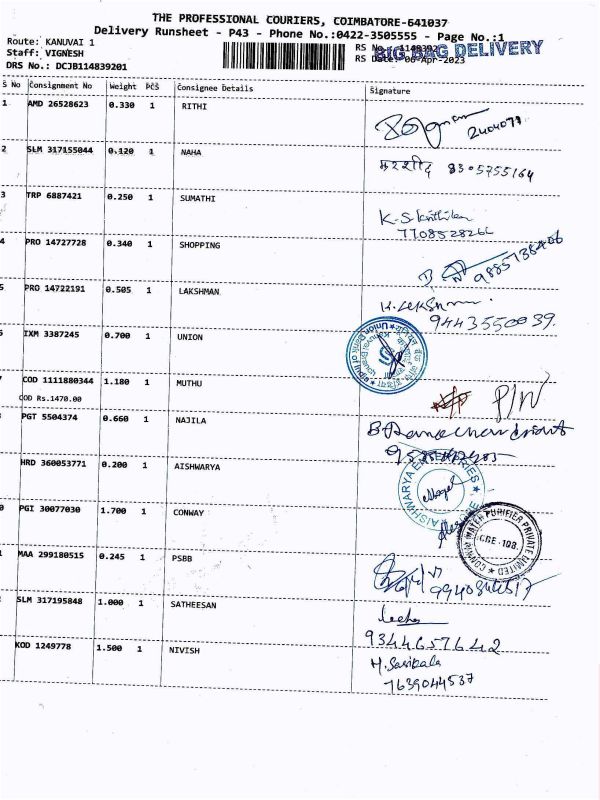 THE PROFESSIONAL COURIERS, COIMBATORE-641037
Delivery Runsheet - P43 - Phone No.:0422-3505555 - Page No.:1
Route: KANUVAI 1
Staff: VIGNESH
DRS No.: DCJB114839201
RS No.: 1148392
RS Date: 06-Apr-2023
BIG BAG DELIVERY
S No Consignment No Weight PCS Consignee Details Signature
1 AMD 26528623 0.330 1 RITHI
2 SLM 317155044 0.120 1 NAHA
3 TRP 6887421 0.250 1 SUMATHI
7708528266
4 PRO 14727728 0.340 1 SHOPPING
5 PRO 14722191 0.505 1 LAKSHMAN
9443550039.
6 IXM 3387245 0.700 1 UNION
Union Bank of India
7 COD 1111880344 1.180 1 MUTHU
COD Rs.1470.00
P/W
PGT 5504374 0.660 1 NAJILA
HRD 360053771 0.200 1 AISHWARYA
AISHWARYA ENTERPRISES
0 PGI 30077030 1.700 1 CONWAY
CONWAY WATER PURIFIER PRIVATE LIMITED
CBE - 108.
1 MAA 299180515 0.245 1 PSBB
2 SLM 317195848 1.000 1 SATHEESAN
9344657642
KOD 1249778 1.500 1 NIVISH
M. Sasikala
7639044537